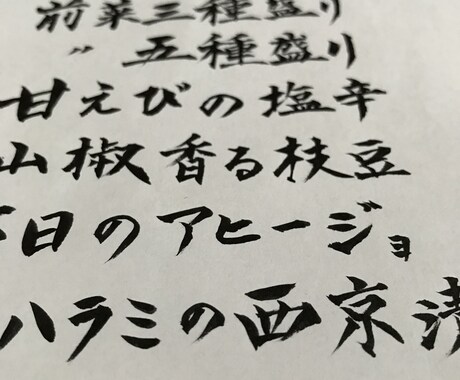 前菜三種盛り
〃 五種盛り
甘えびの塩辛
山椒香る枝豆
日のアヒージョ
ハラミの西京